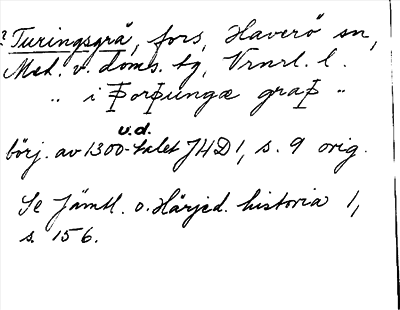 ? Turingsgrå, fors, Haverö sn,
Med. v. doms. tg, Vrnrl. l.
„ i Þorþungæ graþ „
u.d.
börj. av 1300-talet JHD 1, s. 9 orig.
Se Jämtl. o. Härjed. historia 1,
s. 156.